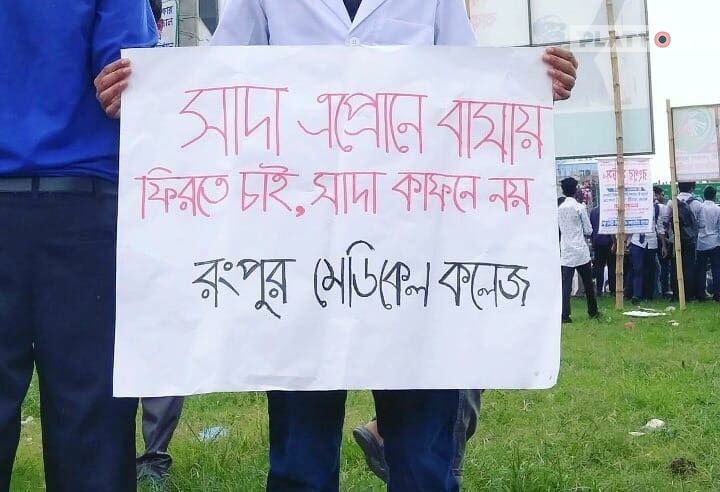 সাদা এপ্রোনে বাসায়
ফিরতে চাই, সাদা কাফনে নয়
রংপুর মেডিকেল কলেজ